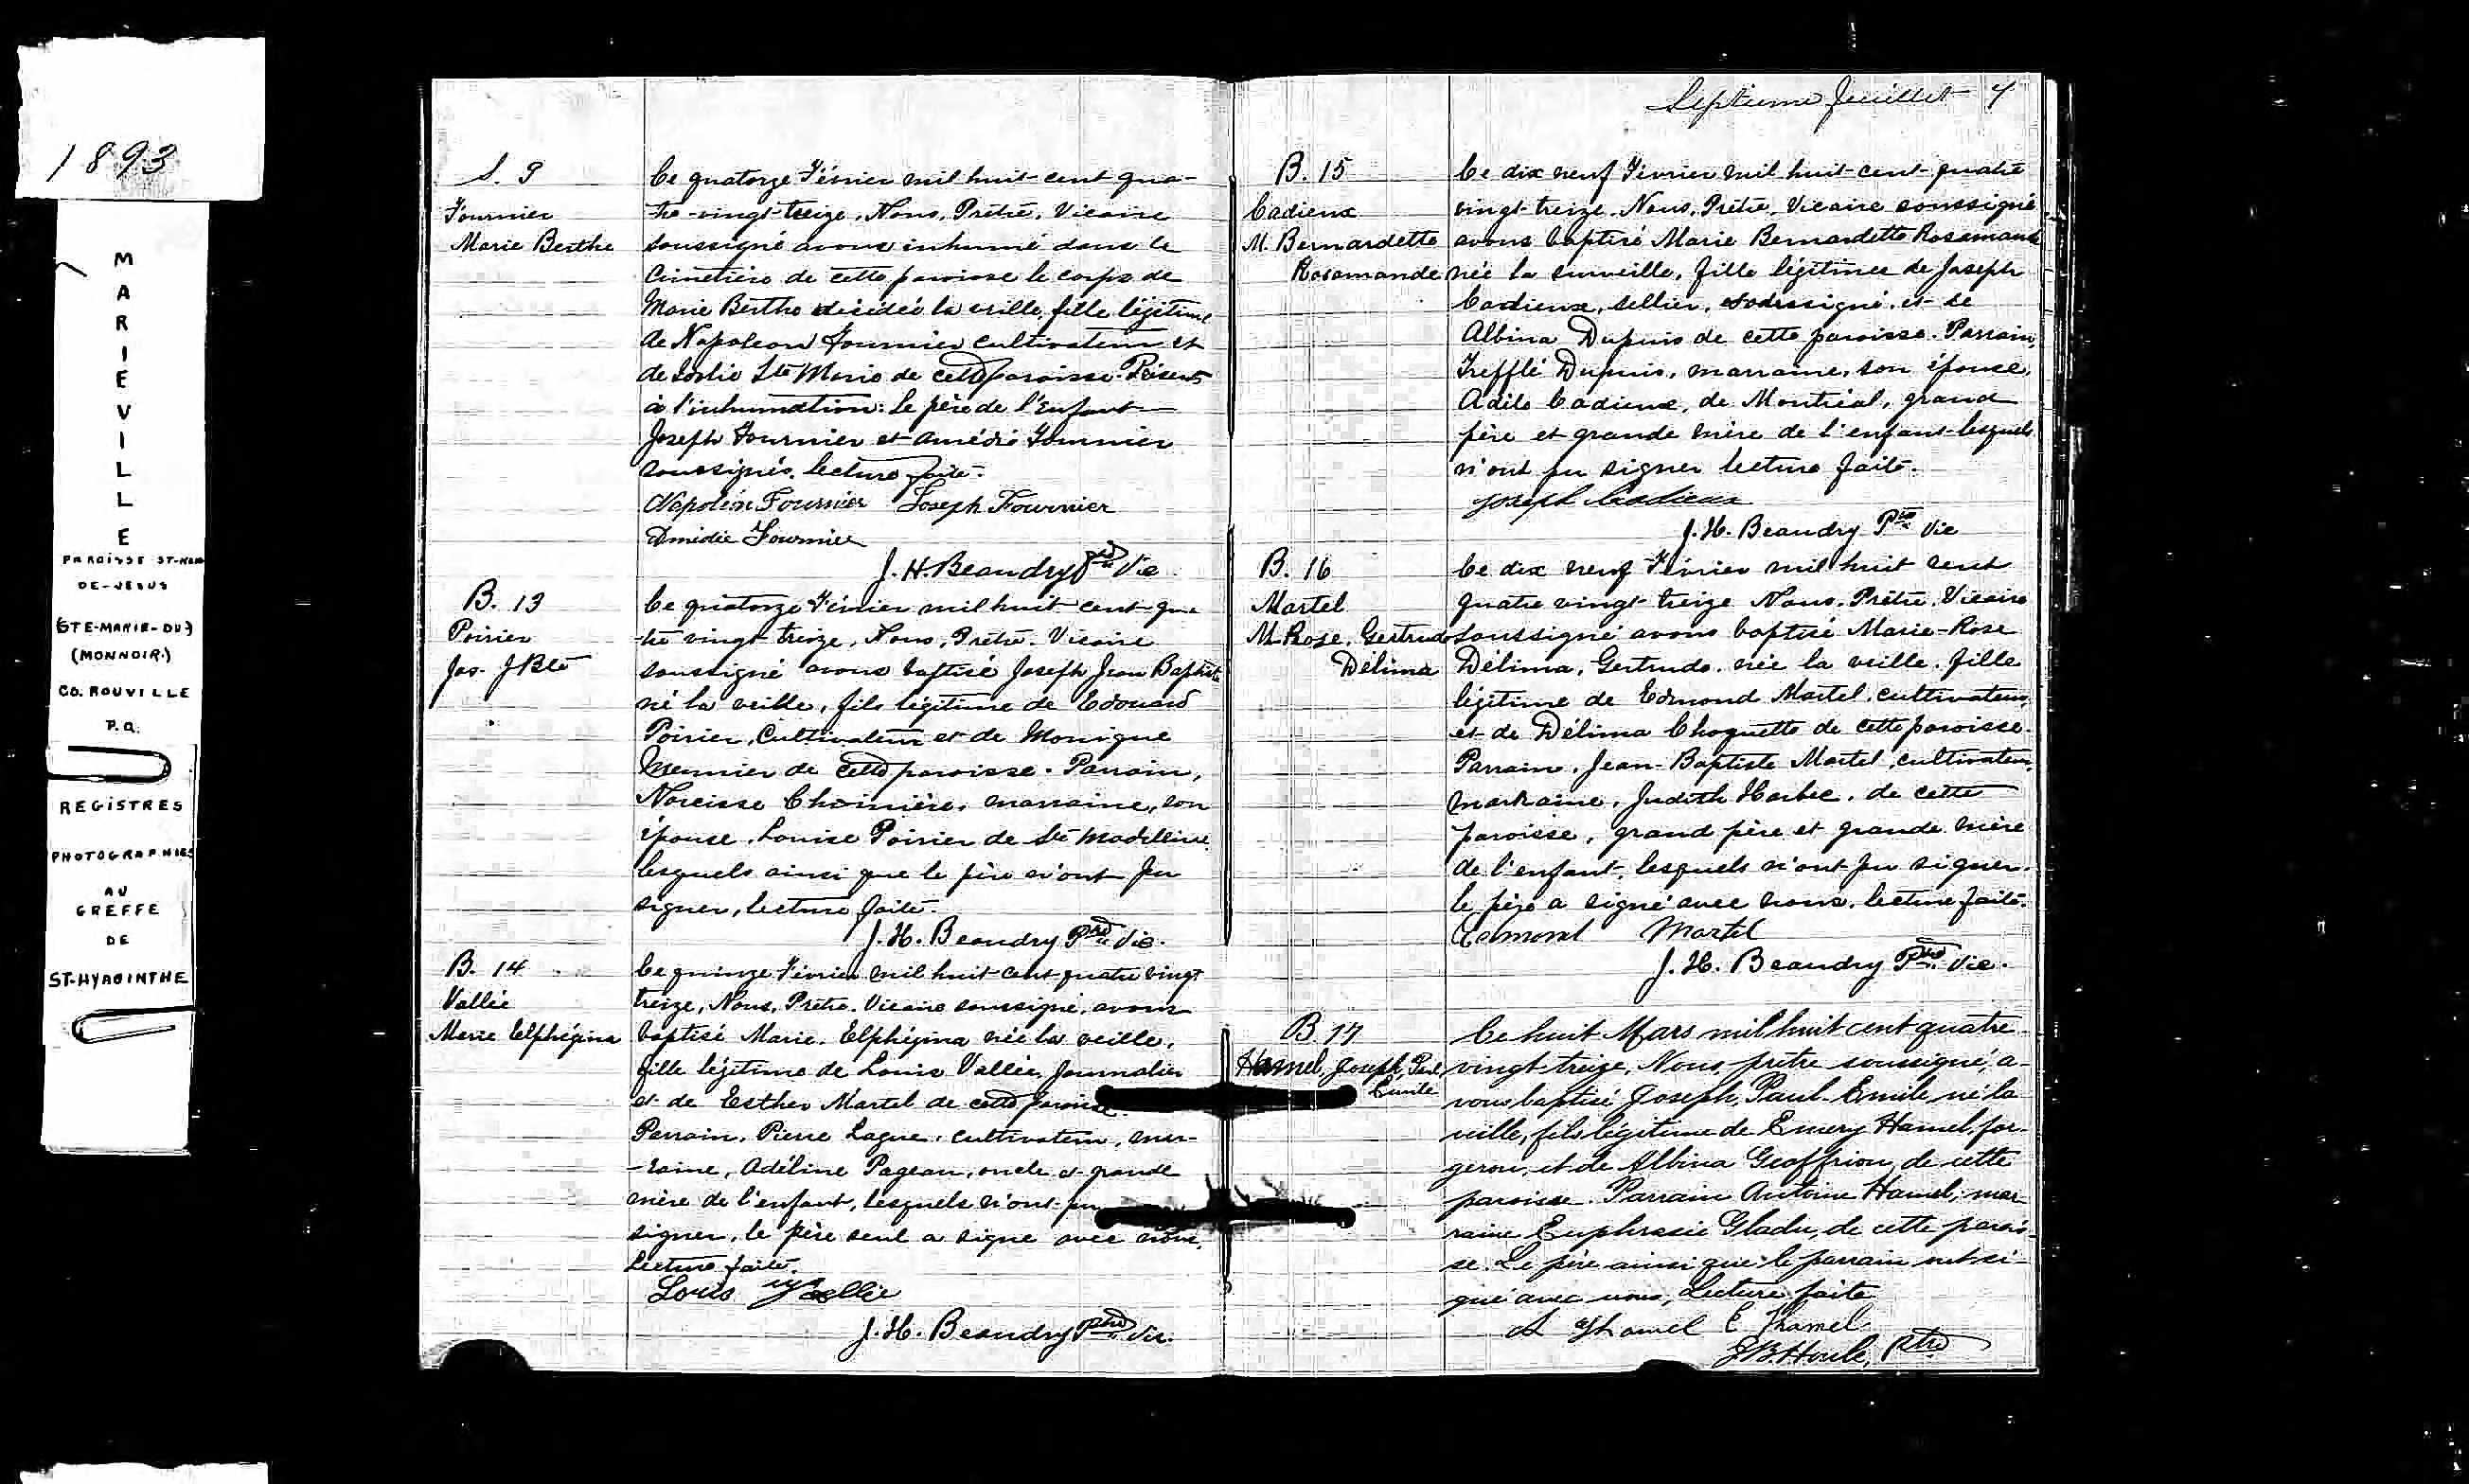 1893
MARIEVILLE
PAROISSE ST-NOM
DE-JESUS
(STE-MARIE-DU)
(MONNOIR.)
CO. ROUVILLE
P.Q.
REGISTRES
PHOTOGRAPHIES
AU
GREFFE
DE
ST-HYACINTHE
S. 9
Fournier
Marie Berthe
Ce quatorze Février mil huit-cent qua-
tre-vingt-treize, Nous, Prêtre, Vicaire
soussigné avons inhumé dans le
Cimetière de cette paroisse le corps de
Marie Berthe décédée la veille, fille légitime
de Napoléon Fournier cultivateur et
de Ste Marie de cette paroisse. Présents
à l'inhumation: le père de l'Enfant
Joseph Fournier et Amédé Fournier
soussignés. Lecture faite.
Napoléon Fournier Joseph Fournier
Amidie Fournier
J. H. Beaudry Ptre Vic.
B. 13
Poirier
Jos. J Bte
Ce quatorze Février mil huit-cent-qua
tre vingt-treize, Nous, Prêtre. Vicaire
soussigné avons baptisé Joseph Jean Baptiste
né la veille, fils légitime de Edouard
Poirier, Cultivateur et de Monique
Meunier de cette paroisse. Parrain,
Narcisse Choinière, marraine, son
épouse, Louise Poirier de Ste Madeleine
lesquels ainsi que le père n'ont pu
signer, lecture faite.
J. H. Beaudry Ptre Vic.
B. 14
Vallée
Marie Elphégina
Ce quinze Février mil huit-cent-quatre vingt
treize, Nous, Prêtre. Vicaire soussigné, avons
baptisé Marie, Elphégina née la veille,
fille légitime de Louis Vallée, Journalier
et de Esther Martel de cette paroisse.
Parrain, Pierre Lague, cultivateur, mar-
-raine, Adéline Pageau, oncle et grande
mère de l'enfant, lesquels n'ont pu
signer, le père seul a signé avec nous,
Lecture faite.
Louis Vallée
J. H. Beaudry Ptre Vic.
Septième feuillet 7
B. 15
Cadieux
M. Bernardette
Rosamande
Ce dix neuf Février mil huit-cent-quatre
vingt-treize. Nous, Prêtre, Vicaire soussigné
avons baptisé Marie Bernardette Rosamande
née la surveille, fille légitime de Joseph
Cadieux, sellier, soussigné, et de
Albina Dupuis de cette paroisse. Parrain,
Trefflé Dupuis, marraine, son épouse,
Adile Cadieux, de Montréal, grand
père et grande mère de l'enfant lesquels
n'ont pu signer lecture faite.
Joseph Cadieux
J. H. Beaudry Ptre Vic
B. 16
Martel
M. Rose, Gertrude
Délima
Ce dix neuf Février mil huit cent
quatre vingt-treize Nous. Prêtre. Vicaire
soussigné avons baptisé Marie-Rose
Délima, Gertrude, née la veille, fille
légitime de Edmond Martel cultivateur,
et de Délima Choquette de cette paroisse.
Parrain, Jean-Baptiste Martel, cultivateur,
marraine, Judith Harbec, de cette
paroisse, grand père et grande mère
de l'enfant, lesquels n'ont pu signer.
le père a signé avec nous, lecture faite.
Edmond Martel
J. H. Beaudry Ptre. Vic.
B. 17
Hamel, Joseph, Paul
Emile
Ce huit Mars mil huit cent quatre-
vingt-treize, Nous, prêtre soussigné, a-
vons baptisé Joseph, Paul-Emile, né la
veille, fils légitime de Emery Hamel, for-
geron, et de Albina Geoffrion, de cette
paroisse. Parrain Antoine Hamel, mar-
raine Euphrasie Gladu, de cette parois-
se. Le père ainsi que le parrain ont si-
gné avec nous, Lecture faite
A Hamel E Hamel
J B. Houle, Ptre